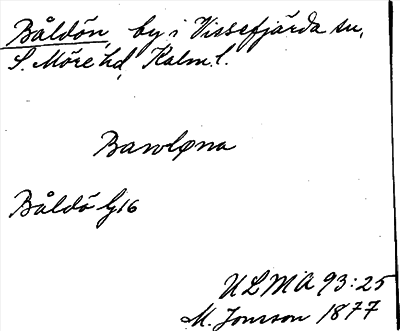 Båldön, by i Vissefjärda sn,
S. Möre hd, Kalm. l.
Bawløna
Båldö G16
ULMA 93:25
M. Jonsson 1877